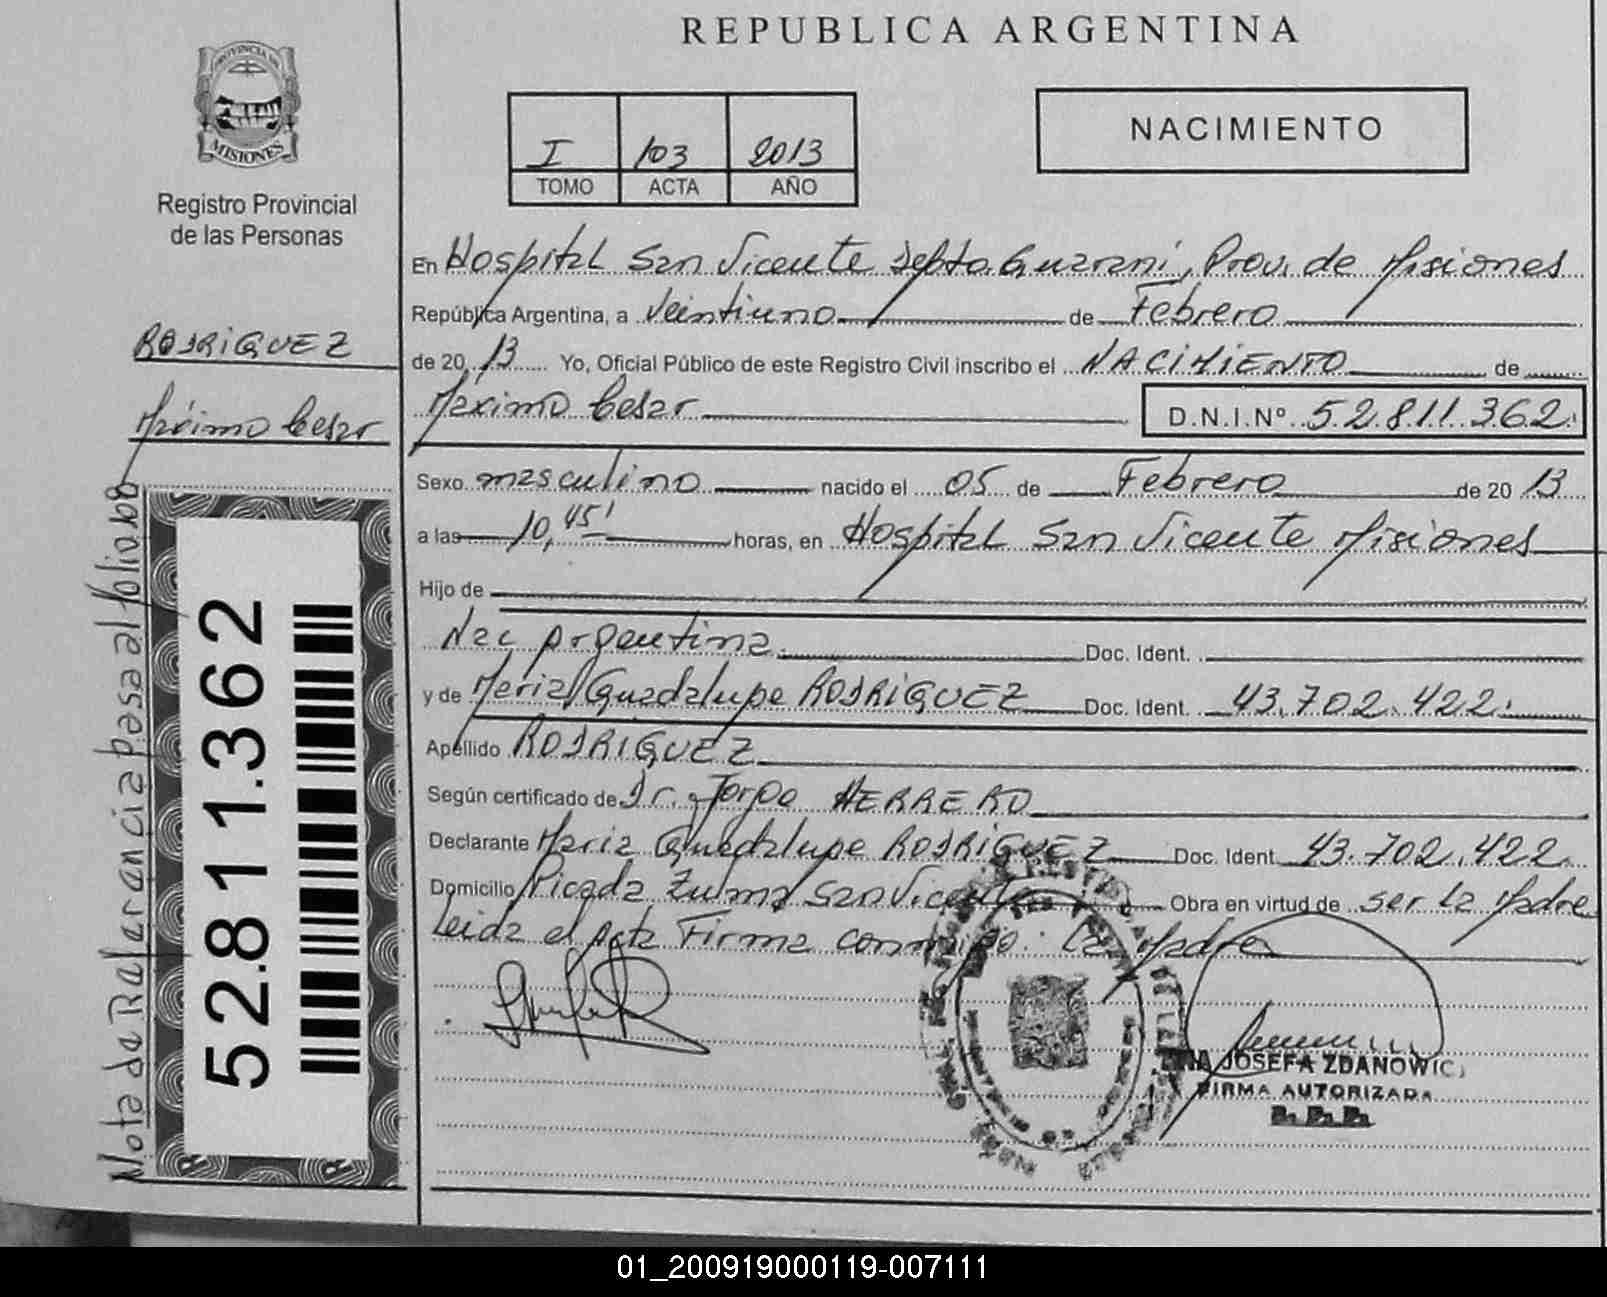 REPUBLICA ARGENTINA
PROVINCIA DE
MISIONES
Registro Provincial
de las Personas
I 103 2013
TOMO ACTA AÑO
NACIMIENTO
En Hospital San Vicente Depto. Guarani, Prov. de Misiones
República Argentina, a Veintiuno de Febrero
de 20 13 Yo, Oficial Público de este Registro Civil inscribo el NACIMIENTO de
Máximo Cesar D.N.I.Nº 52.811.362.
Sexo masculino nacido el 05 de Febrero de 20 13
a las 10,45' horas, en Hospital San Vicente Misiones
Hijo de
Nac Argentina. Doc. Ident.
y de Maria Guadalupe RODRIGUEZ Doc. Ident. 43.702.422.
Apellido RODRIGUEZ
Según certificado de Dr. Jorge HERRERO
Declarante Maria Guadalupe RODRIGUEZ Doc. Ident. 43.702.422.
Domicilio Picada Zulma San Vicente Obra en virtud de ser la Madre
Leida el Acta Firma conmigo: La Madre
JOSEFA ZDANOWIC
FIRMA AUTORIZADA
RODRIGUEZ
Máximo Cesar
Nota de Referencia pasa al folio
52.811.362
01_200919000119-007111